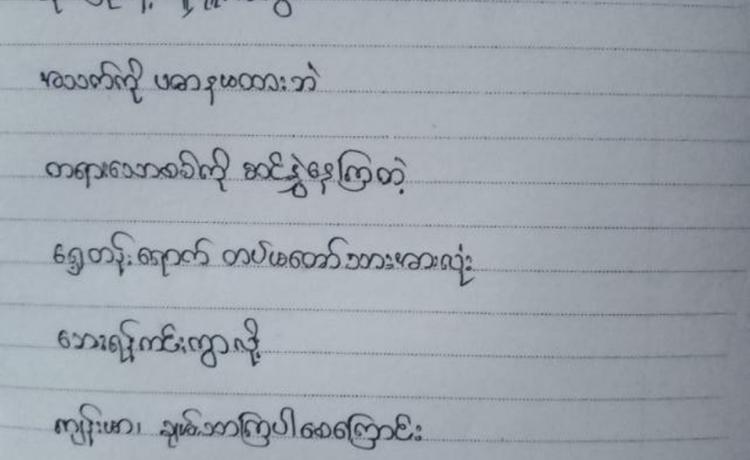 အသက်ကို ပဓာနမထားဘဲ
တရားသောစစ်ကို ဆင်နွှဲနေကြတဲ့
ရှေ့တန်းရောက် တပ်မတော်သားအားလုံး
ဘေးရန်ကင်းကွာလို့
ကျန်းမာ၊ ချမ်းသာကြပါစေကြောင်း